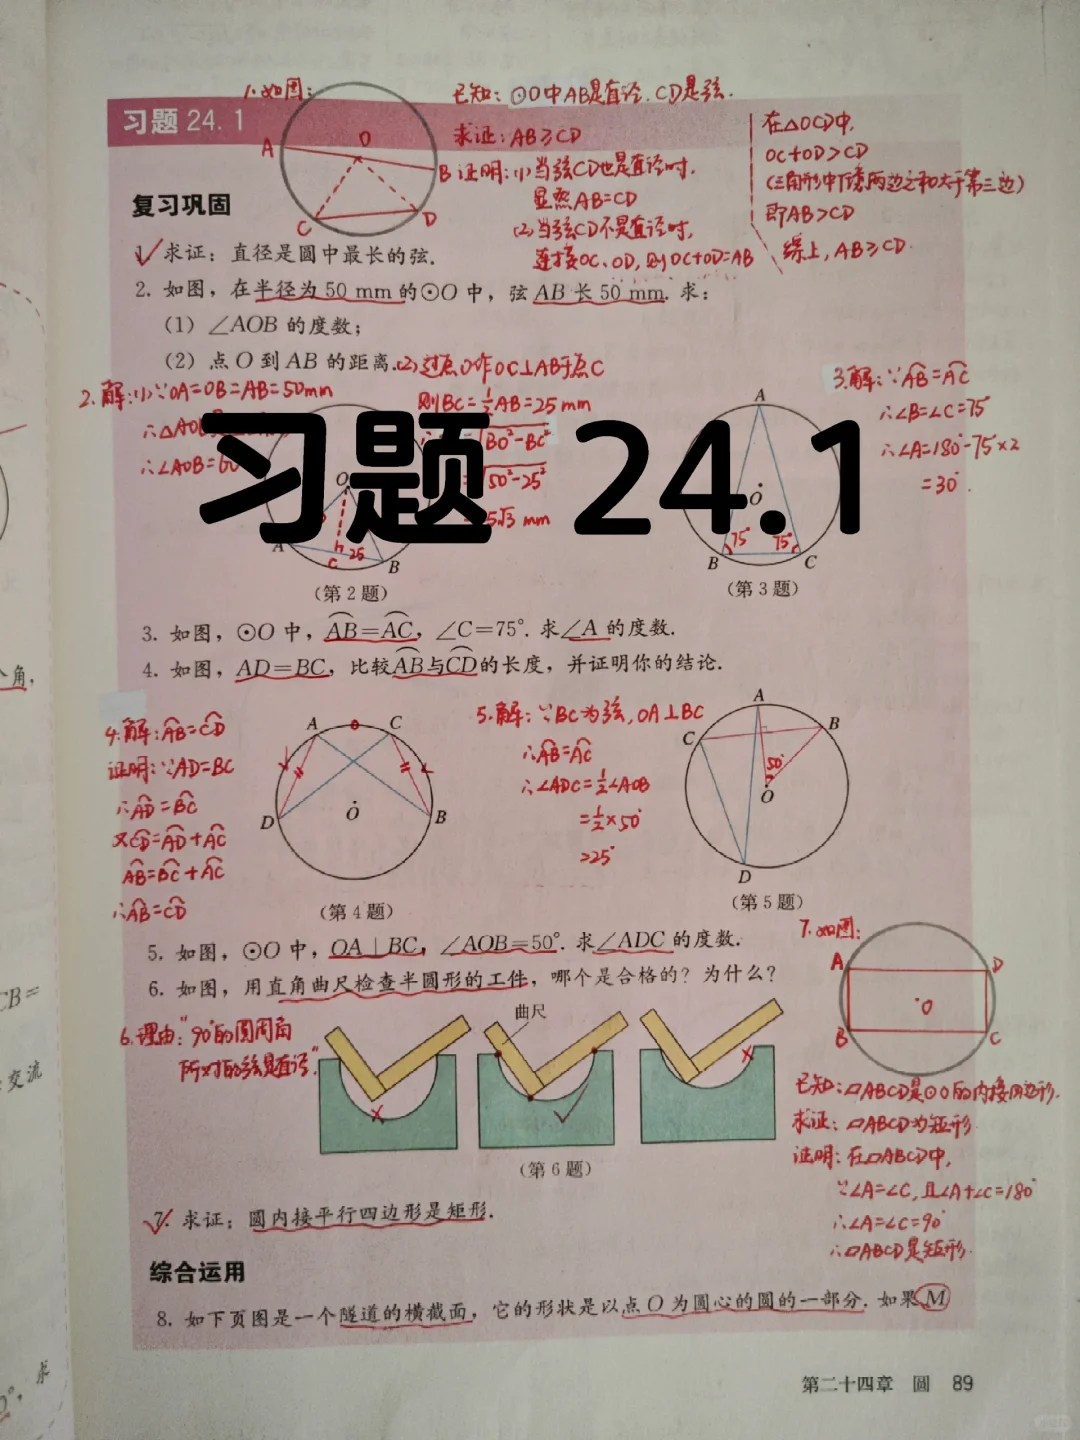 1.如图:
已知: ⊙O中AB是直径.CD是弦.
习题 24.1
求证: AB≥CD
证明: (1)当弦CD也是直径时.
显然AB=CD
(2)当弦CD不是直径时,
连接OC、OD,则OC+OD=AB
在△OCD中,
OC+OD>CD
即AB>CD
综上, AB≥CD.
A
O
B
C
D
复习巩固
1. 求证：直径是圆中最长的弦.
2. 如图，在半径为 50 mm 的⊙O 中，弦 AB 长 50 mm. 求：
(1) ∠AOB 的度数；
(2) 点 O 到 AB 的距离.
(2)过点O作OC⊥AB于点C
2.解:(1)∵OA=OB=AB=50mm
则BC=½AB=25 mm
习题 24.1
O
A
C
25
B
(第 2 题)
3.解: ∵A͡B=A͡C
∴∠B=∠C=75°
∴∠A=180°-75°×2
=30°.
A
O
75°
75°
B
C
(第 3 题)
3. 如图，⊙O 中，A͡B=A͡C，∠C=75°. 求∠A 的度数.
4. 如图，AD=BC，比较A͡B与C͡D的长度，并证明你的结论.
4.解: A͡B=C͡D
证明: ∵AD=BC
∴A͡D=B͡C
又C͡D=A͡D+A͡C
A͡B=B͡C+A͡C
∴A͡B=C͡D
A
C
D
O
B
(第 4 题)
5.解: ∵BC为弦,OA⊥BC
∴A͡B=A͡C
∴∠ADC=½∠AOB
=½×50°
=25°
A
B
C
50°
O
D
(第 5 题)
5. 如图，⊙O 中，OA⊥BC，∠AOB=50°. 求∠ADC 的度数.
6. 如图，用直角曲尺检查半圆形的工件，哪个是合格的？为什么？
6.理由:"90°的圆周角
所对的弦是直径."
曲尺
(第 6 题)
7.如图:
A
D
O
B
C
已知:▱ABCD是⊙O的内接四边形.
求证: ▱ABCD为矩形.
证明: 在▱ABCD中,
∵∠A=∠C,且∠A+∠C=180°
∴∠A=∠C=90°
∴▱ABCD是矩形.
7. 求证：圆内接平行四边形是矩形.
综合运用
8. 如下页图是一个隧道的横截面，它的形状是以点 O 为圆心的圆的一部分. 如果 M
第二十四章 圆 89
个角，
CB=
交流
求